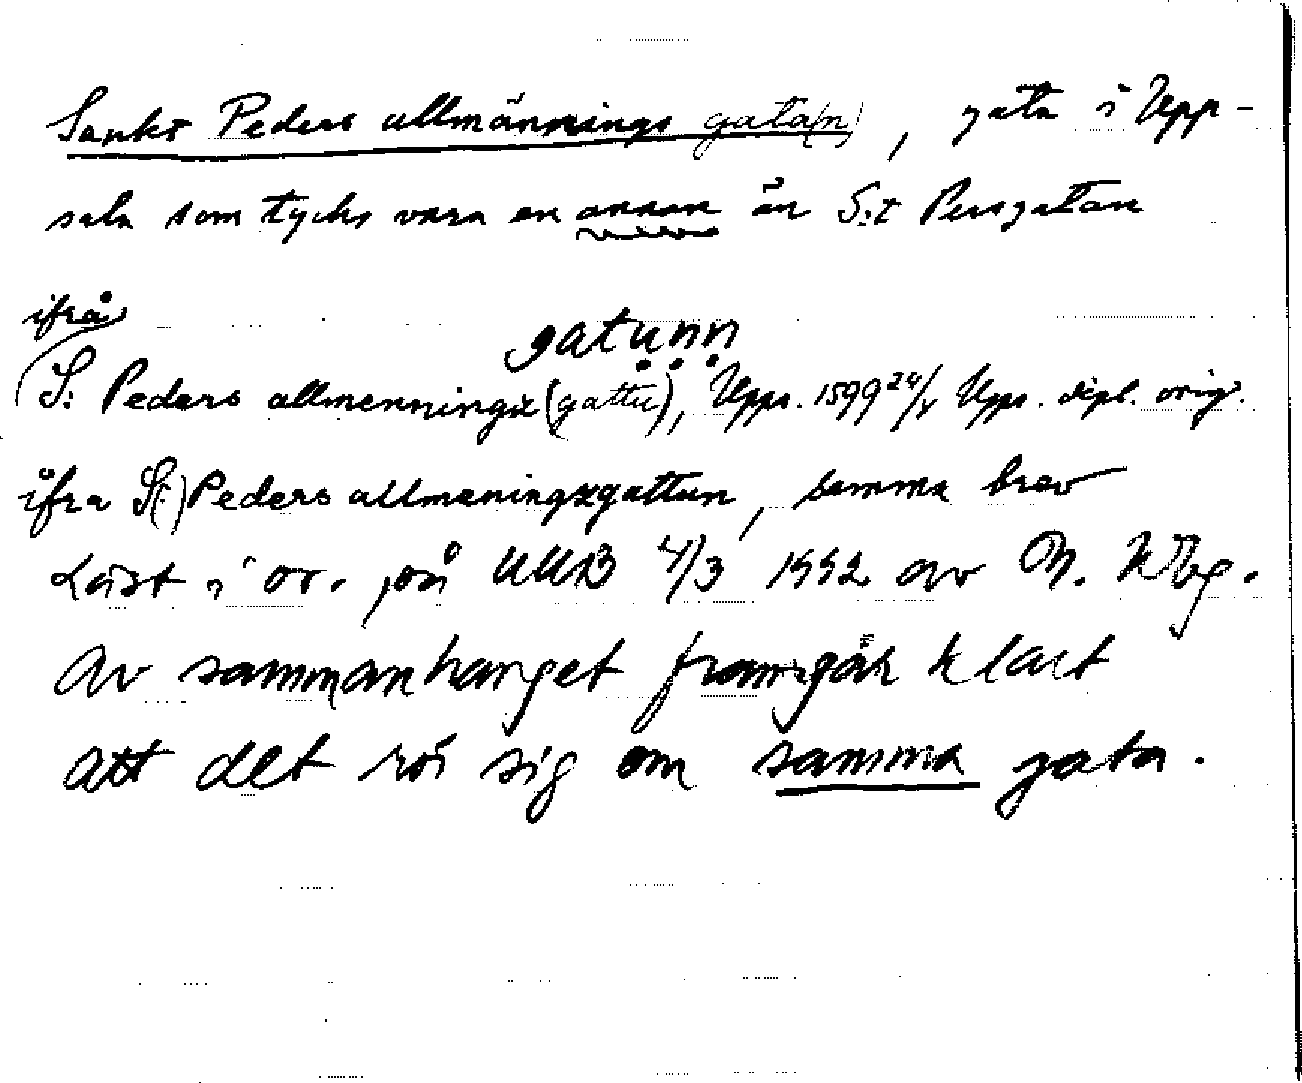 Sankt Peders allmännings gata(n), gata i Upp-
sala som tycks vara en annan än S:t Persgatan
ifrå
gatunn
S: Peders allmenningx (gattu), Upps. 1599 24/1 Upps. dipl. orig.
ifrå S(:) Peders allmeningxgattun, samma brev
Läst i or. på UUB 4/3 1952 av
Av sammanhanget framgår klart
att det rör sig om samma gata.